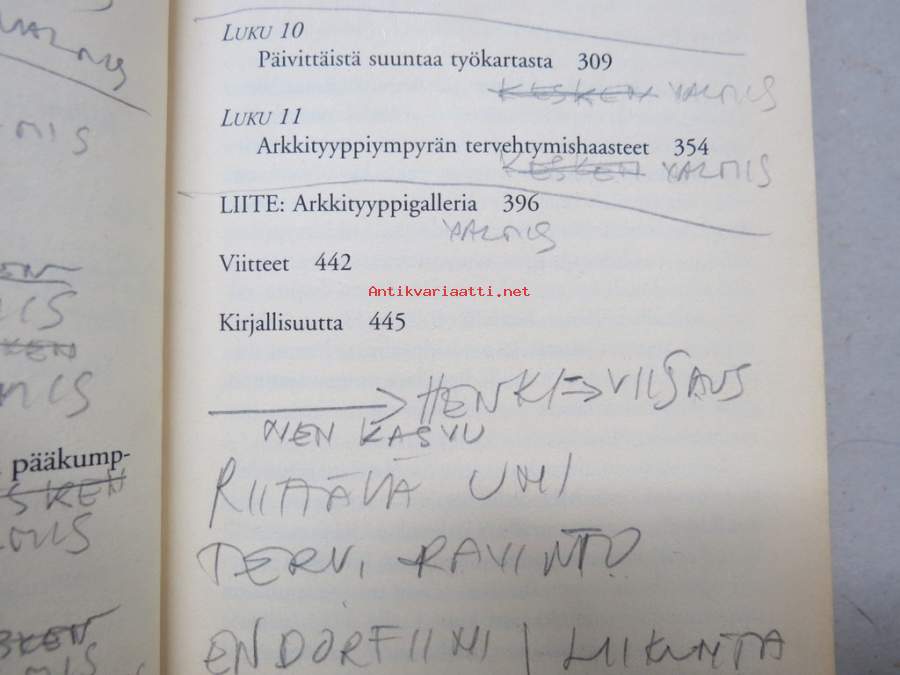 VALMIS
LUKU 10
Päivittäistä suuntaa työkartasta 309
KESKEN VALMIS
LUKU 11
Arkkityyppiympyrän tervehtymishaasteet 354
KESKEN VALMIS
LIITE: Arkkityyppigalleria 396
VALMIS
Viitteet 442
Antikvariaatti.net
Kirjallisuutta 445
HENKI => VIISAUS
NEN KASVU
pääkump-
RIITTÄVÄ UNI
TERV. RAVINTO
ENDORFIINI / LIIKUNTA